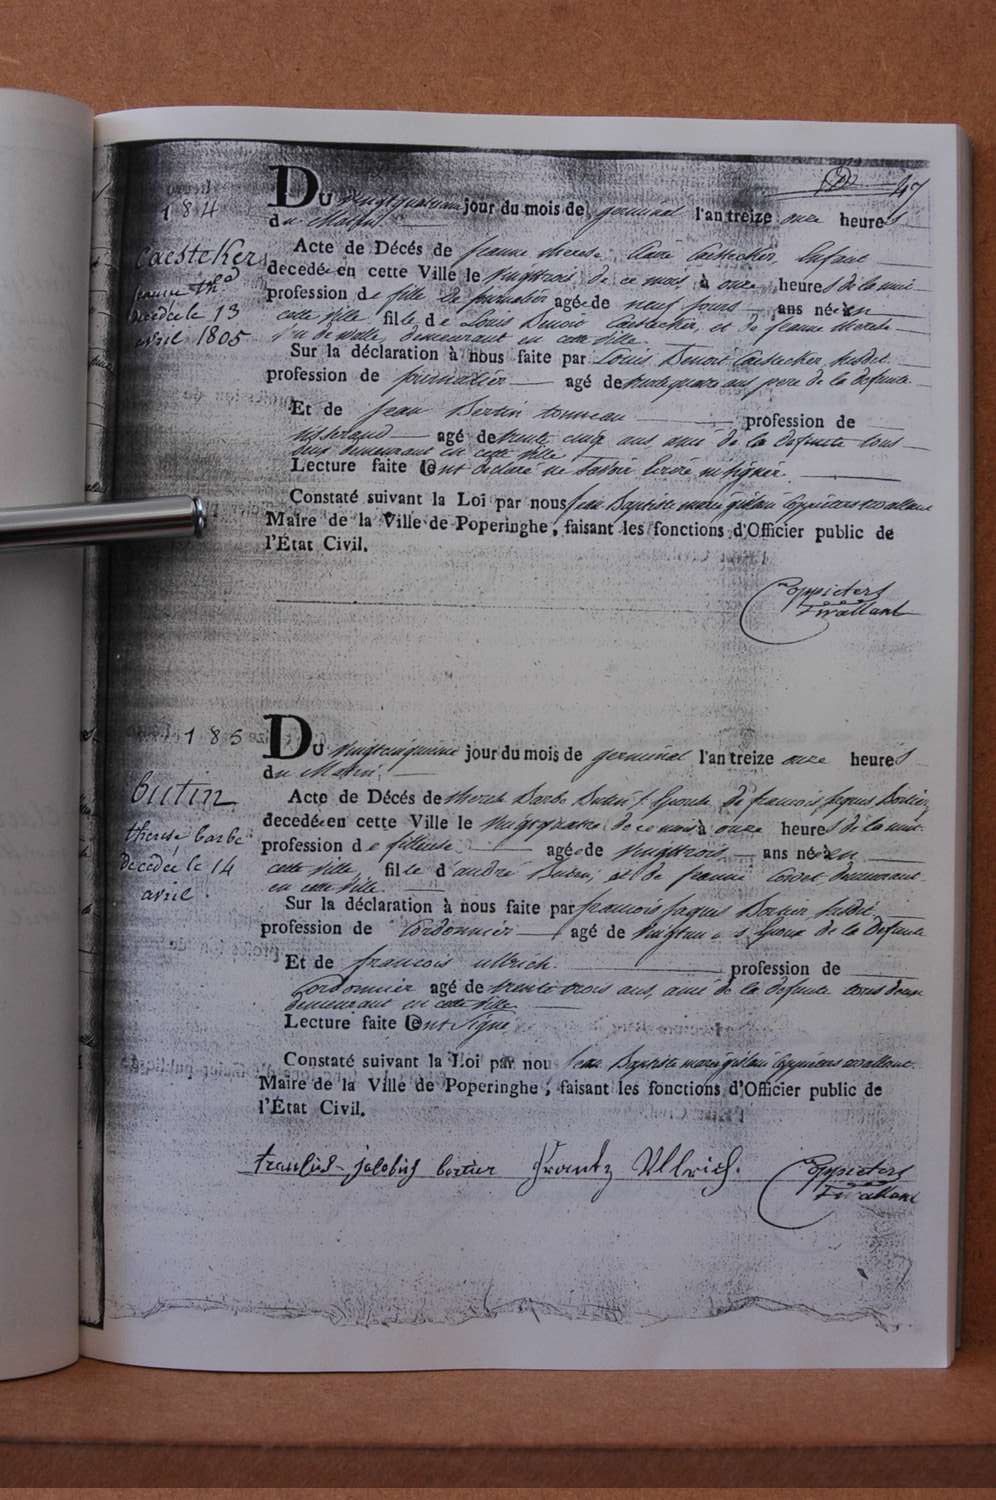 47
184
Du vingtquatrieme jour du mois de germinal l'an treize onze heures
du Matin
Caestecker
Acte de Décés de jeanne therese Claire Caestecker, Enfant
decedée en cette Ville le vingttrois de ce mois, à onze heures de la nuit
decedée le 13
profession de fille de journalier agée de neuf jours ans née en
avril 1805
cette ville, fille de Louis Benoit Caestecker, et de jeanne therese
demeurant en cette ville.
Sur la déclaration à nous faite par Louis Benoit Caestecker susdit
profession de journalier agé de quatre ans pere de la defunte
Et de jean Bertin tonneau profession de
tisserand agé de trente cinq ans, ami de la defunte tous
deux demeurant en cette ville
Lecture faite ont declaré ne savoir Ecrire ni signer.
Constaté suivant la Loi par nous jean Baptiste marie ghislain Coppieters twallant
Maire de la Ville de Poperinghe, faisant les fonctions d'Officier public de
l'État Civil.
Coppieters
twallant
185
Du vingtcinquieme jour du mois de germinal l'an treize onze heures
du Matin
butin
Acte de Décés de therese Barbe Butin, Epouse de francois jaques Bortier,
therese barbe
decedée en cette Ville le vingtquatre de ce mois à onze heures de la nuit
decedée le 14
profession de fileuse agée de vingttrois ans née en
avril
cette ville, fille d'andré Butin, et de jeanne demeurant
en cette ville.
Sur la déclaration à nous faite par francois jaques Bortier susdit
profession de Cordonnier agé de Epoux de la defunte
Et de francois ullrich. profession de
Cordonnier agé de trente trois ans, ami de la defunte tous deux
demeurant en cette ville
Lecture faite ont signé
Constaté suivant la Loi par nous jean Baptiste marie ghislain Coppieters twallant.
Maire de la Ville de Poperinghe, faisant les fonctions d'Officier public de
l'État Civil.
jakobus bortier Frantz Ullrich. Coppieters
twallant